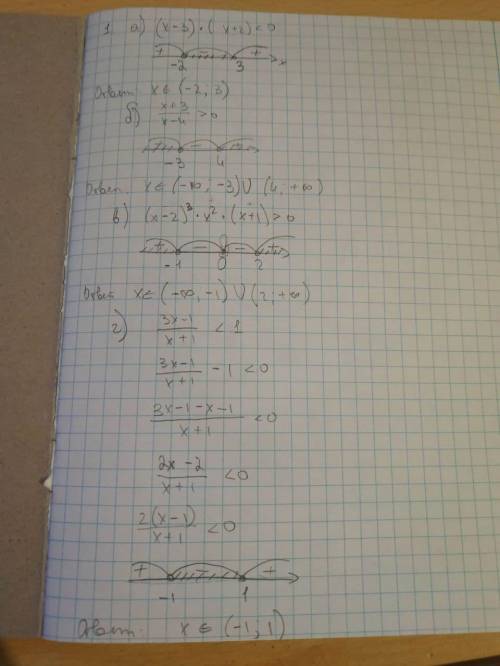 1 а) (x-3)·(x+2)<0
+ - + x
-2 3
Ответ x∈(-2; 3)
б) x+3/x-4 >0
-
-3 4
Ответ. x∈(-∞; -3)∪(4; +∞)
в) (x-2)³·x²·(x+1)>0
+ - - +
-1 0 2
Ответ x∈(-∞; -1)∪(2; +∞)
г) 3x-1/x+1 < 1
3x-1/x+1 -1 <0
3x-1-x-1/x+1 <0
2x-2/x+1 <0
2(x-1)/x+1 <0
+ - +
-1 1
Ответ. x∈(-1; 1)